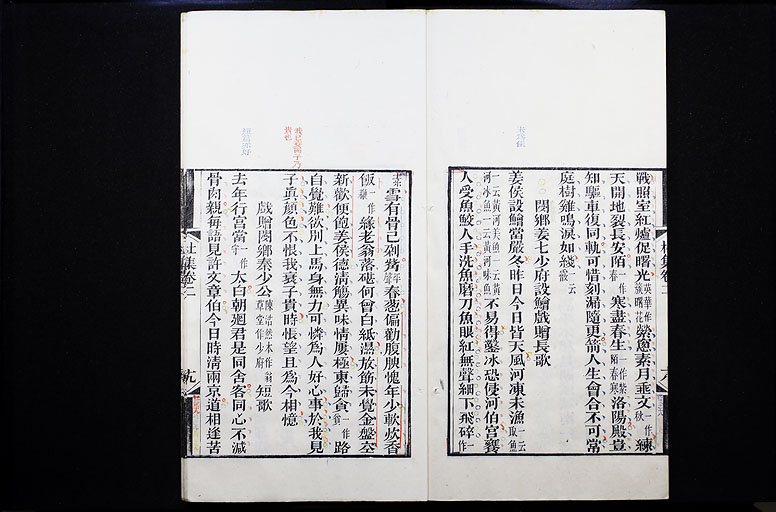 戰照室紅爐促曙光英華作簇曙花縈窻素月垂文一作秋練
天開地裂長安陌一作春寒盡春生洛陽殿豈
知驅車復同軌可惜刻漏隨更箭人生會合不可常
庭樹雞鳴淚如綫一云霰
閿鄉姜七少府設鱠戲贈長歌
姜侯設鱠當嚴冬昨日今日皆天風河凍未漁一云取魚
不易得鑿冰恐侵河伯宮饔
人受魚鮫人手洗魚磨刀魚眼紅無聲細下飛碎一作
素雪有骨已剁觜春葱偏勸腹腴愧年少軟炊香
飯一作緣老翁落碪何曾白紙濕放筯未覺金盤空
新歡便飽姜侯德清觴異味情屢極東歸貪一作路
自覺難欲別上馬身無力可憐爲人好心事於我見
子眞顏色不恨我衰子貴時悵望且爲今相憶
戲贈閿鄉秦少公短歌
去年行宮當一作守太白朝迴君是同舍客同心不減
骨肉親每語見許文章伯今日時清兩京道相逢苦
杜集卷二